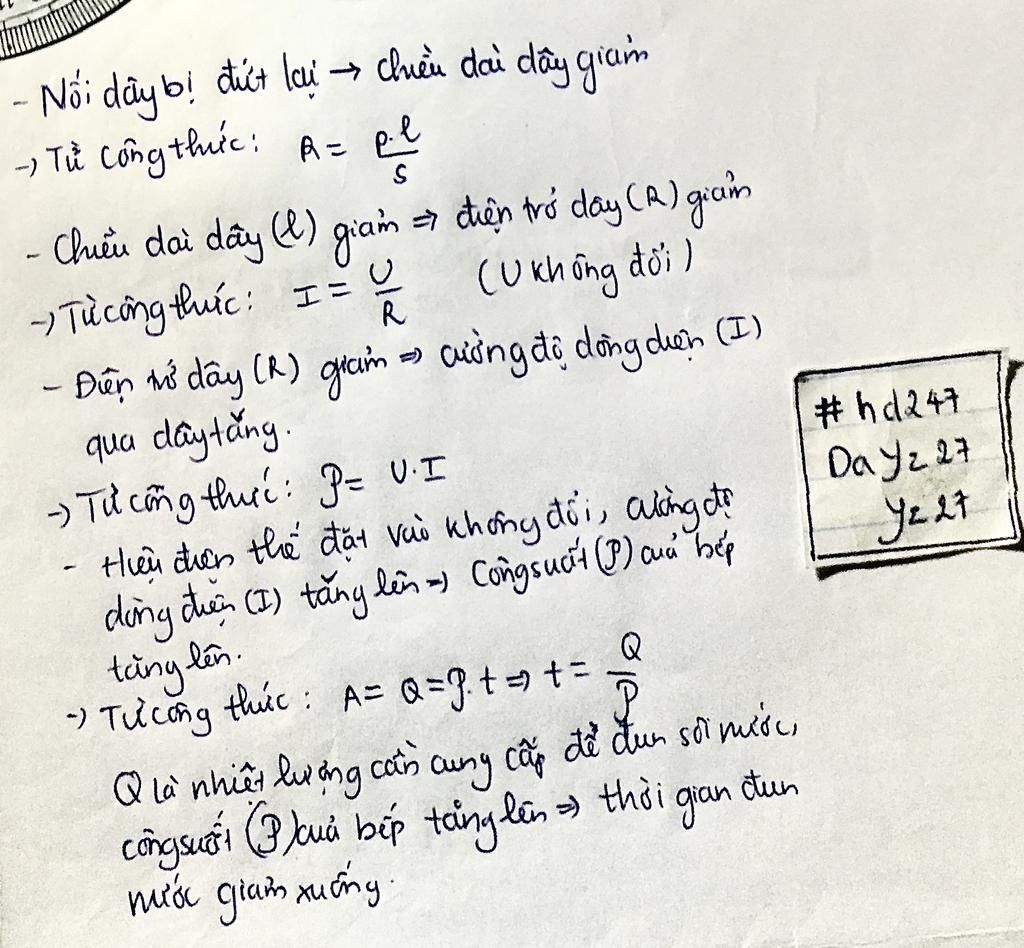 - Nối dây bị đứt lại → chiều dài dây giảm
→ Từ công thức: R = ρ.l/S
- Chiều dài dây (l) giảm ⇒ điện trở dây (R) giảm
→ Từ công thức: I = U/R (U không đổi)
- Điện trở dây (R) giảm ⇒ cường độ dòng điện (I)
qua dây tăng.
→ Từ công thức: P = U.I
- Hiệu điện thế đặt vào không đổi, cường độ
dòng điện (I) tăng lên → Công suất (P) của bếp
tăng lên.
→ Từ công thức: A = Q = P.t ⇒ t = Q/P
Q là nhiệt lượng cần cung cấp để đun sôi nước,
công suất (P) của bếp tăng lên ⇒ thời gian đun
nước giảm xuống.
#hd247
Dayz27
yz27